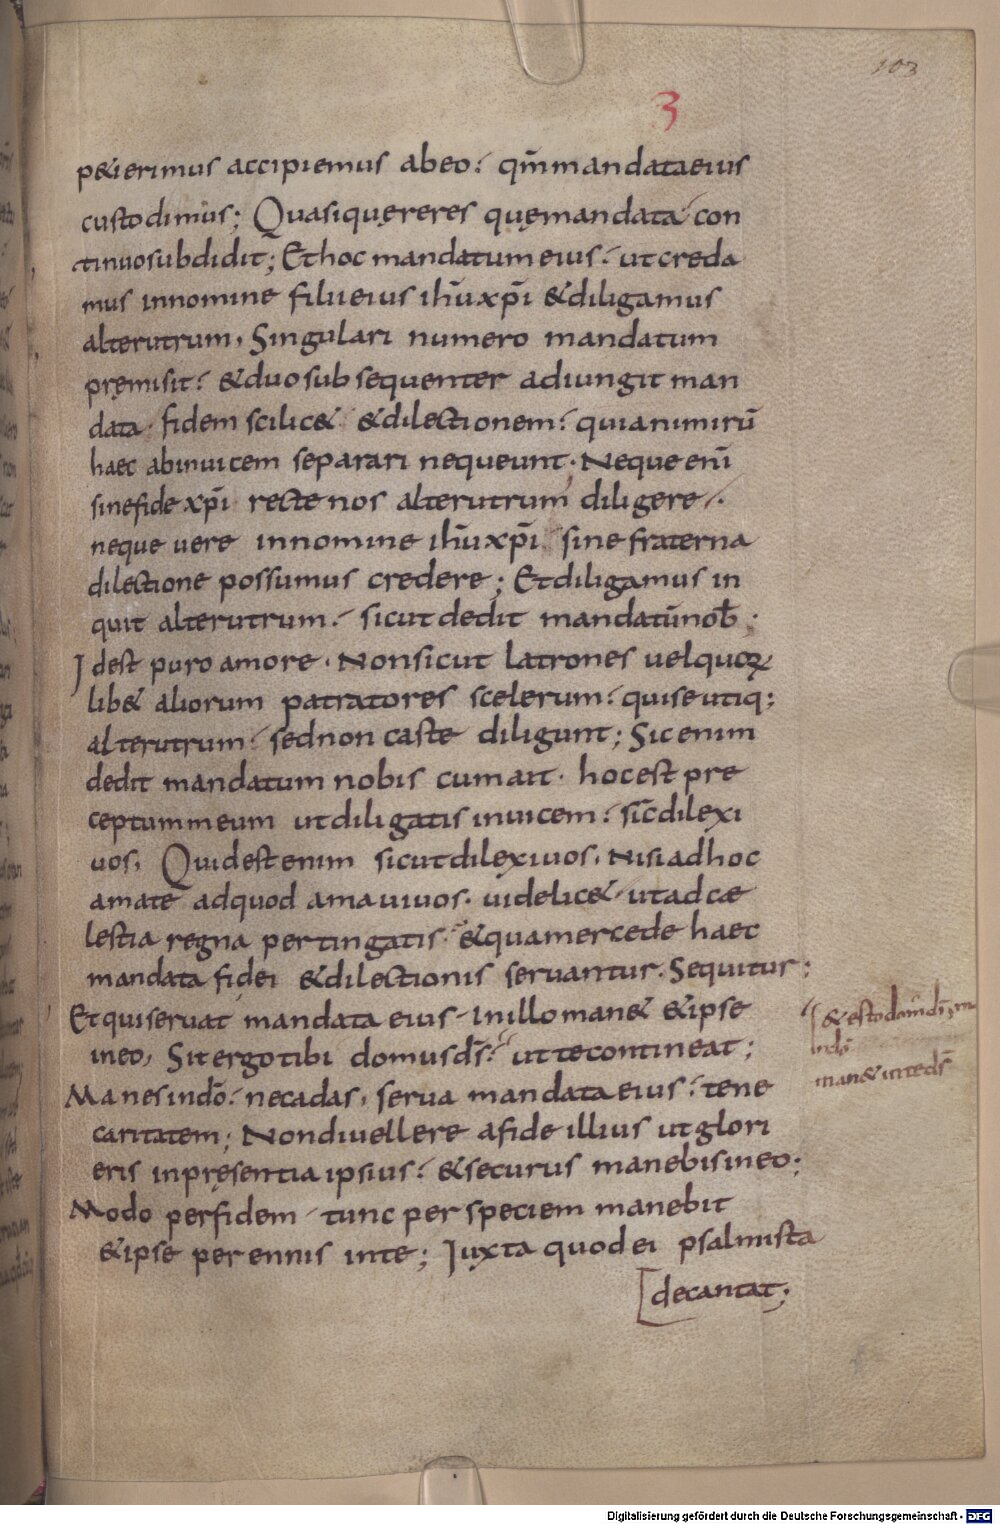 103
3
p&ierimus accipiemus abeo. qm̄mandataeius
custodimus; Quasiquęreres quęmandata con
tinuosubdidit; Ethoc mandatumeius. utcreda
mus innomine filiieius ih̄uxp̄i &diligamus
alterutrum, Singulari numero mandatum
pręmisit. &duosubsequenter adiungit man
data. fidem scilic& &dilectionem. quianimirū
haec abinuicem separari nequeunt. Neque enī
sinefide xp̄i recte nos alterutrum diligere.
neque uere innomine ih̄uxp̄i sine fraterna
dilectione possumus credere; Etdiligamus in
quit alterutrum. sicutdedit mandatūnob̄.
Idest puro amore. Nonsicut latrones uelquoꝝ
lib& aliorum patratores scelerum. quiseutiq;
alterutrum. sednon caste diligunt; Sic enim
dedit mandatum nobis cumait. hocest pre
ceptummeum utdiligatis inuicem. sic̄dilexi
uos, Quidestenim sicutdilexiuos, Nisiadhoc
amate adquod amauiuos. uidelic& utadcæ
lestia regna pertingatis. &quamercede haec
mandata fidei &dilectionis seruantur. Sequitur;
Etquiseruat mandata eius. Inillo man& &ipse
ineo, Sit ergo tibi domusd̄s. uttecontineat;
& esto domusdī;
man& inteds̄
Manesindō. necadas, serua mandataeius. tene
caritatem; Nondiuellere afide illius utglori
eris inpręsentia ipsius. &securus manebisineo;
Modo perfidem tunc per speciem manebit
&ipse perennis inte; Iuxta quodei psalmista
decantat;
Digitalisierung gefördert durch die Deutsche Forschungsgemeinschaft - DFG